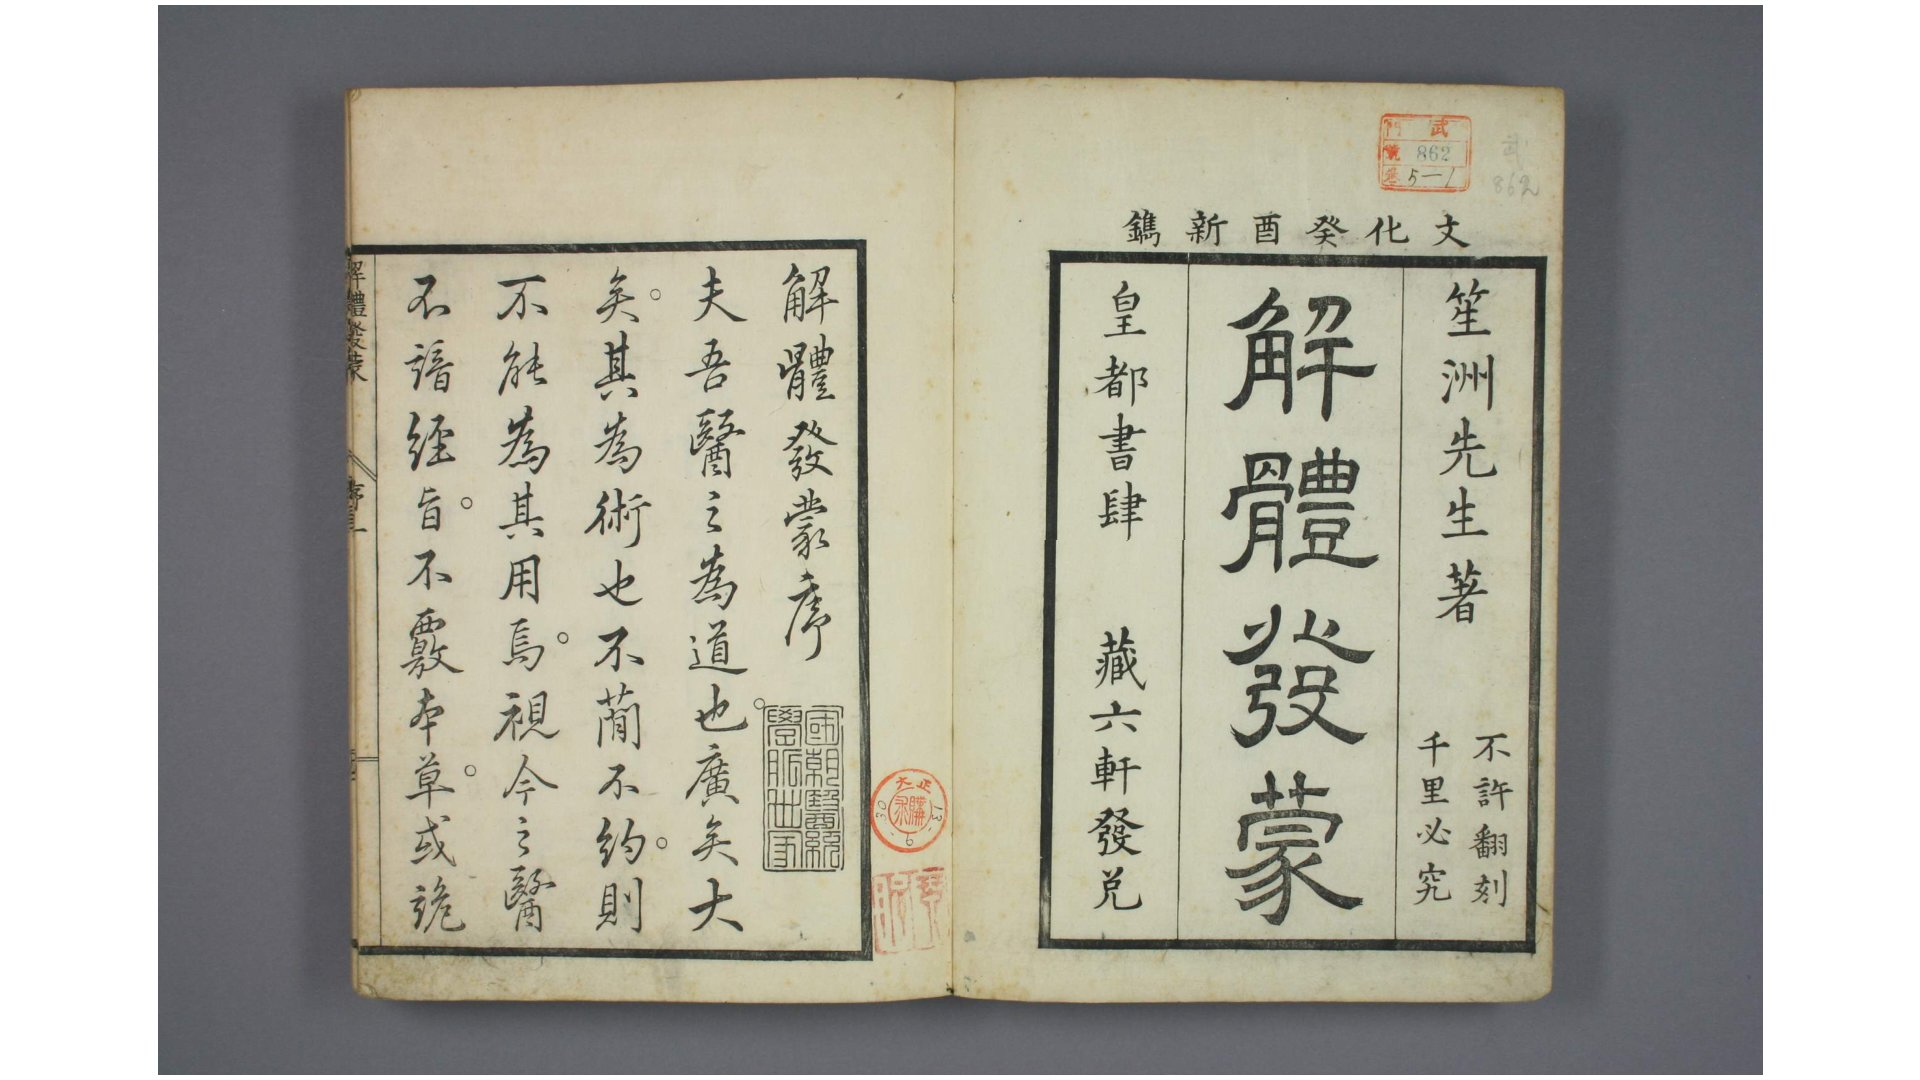 武
門
號 862
卷 5—1
武
862
文化癸酉新鐫
笙洲先生著
不許翻刻
千里必究
解體發蒙
皇都書肆 藏六軒發兌
解體發蒙序
國朝醫統
學脈世家
夫吾醫之為道也。廣矣大
矣。其為術也不蕳不約。則
不能為其用焉。視今之醫
不諳経旨。不覈本草。或詭
解體發蒙
序一
大正
13.6.30
購求